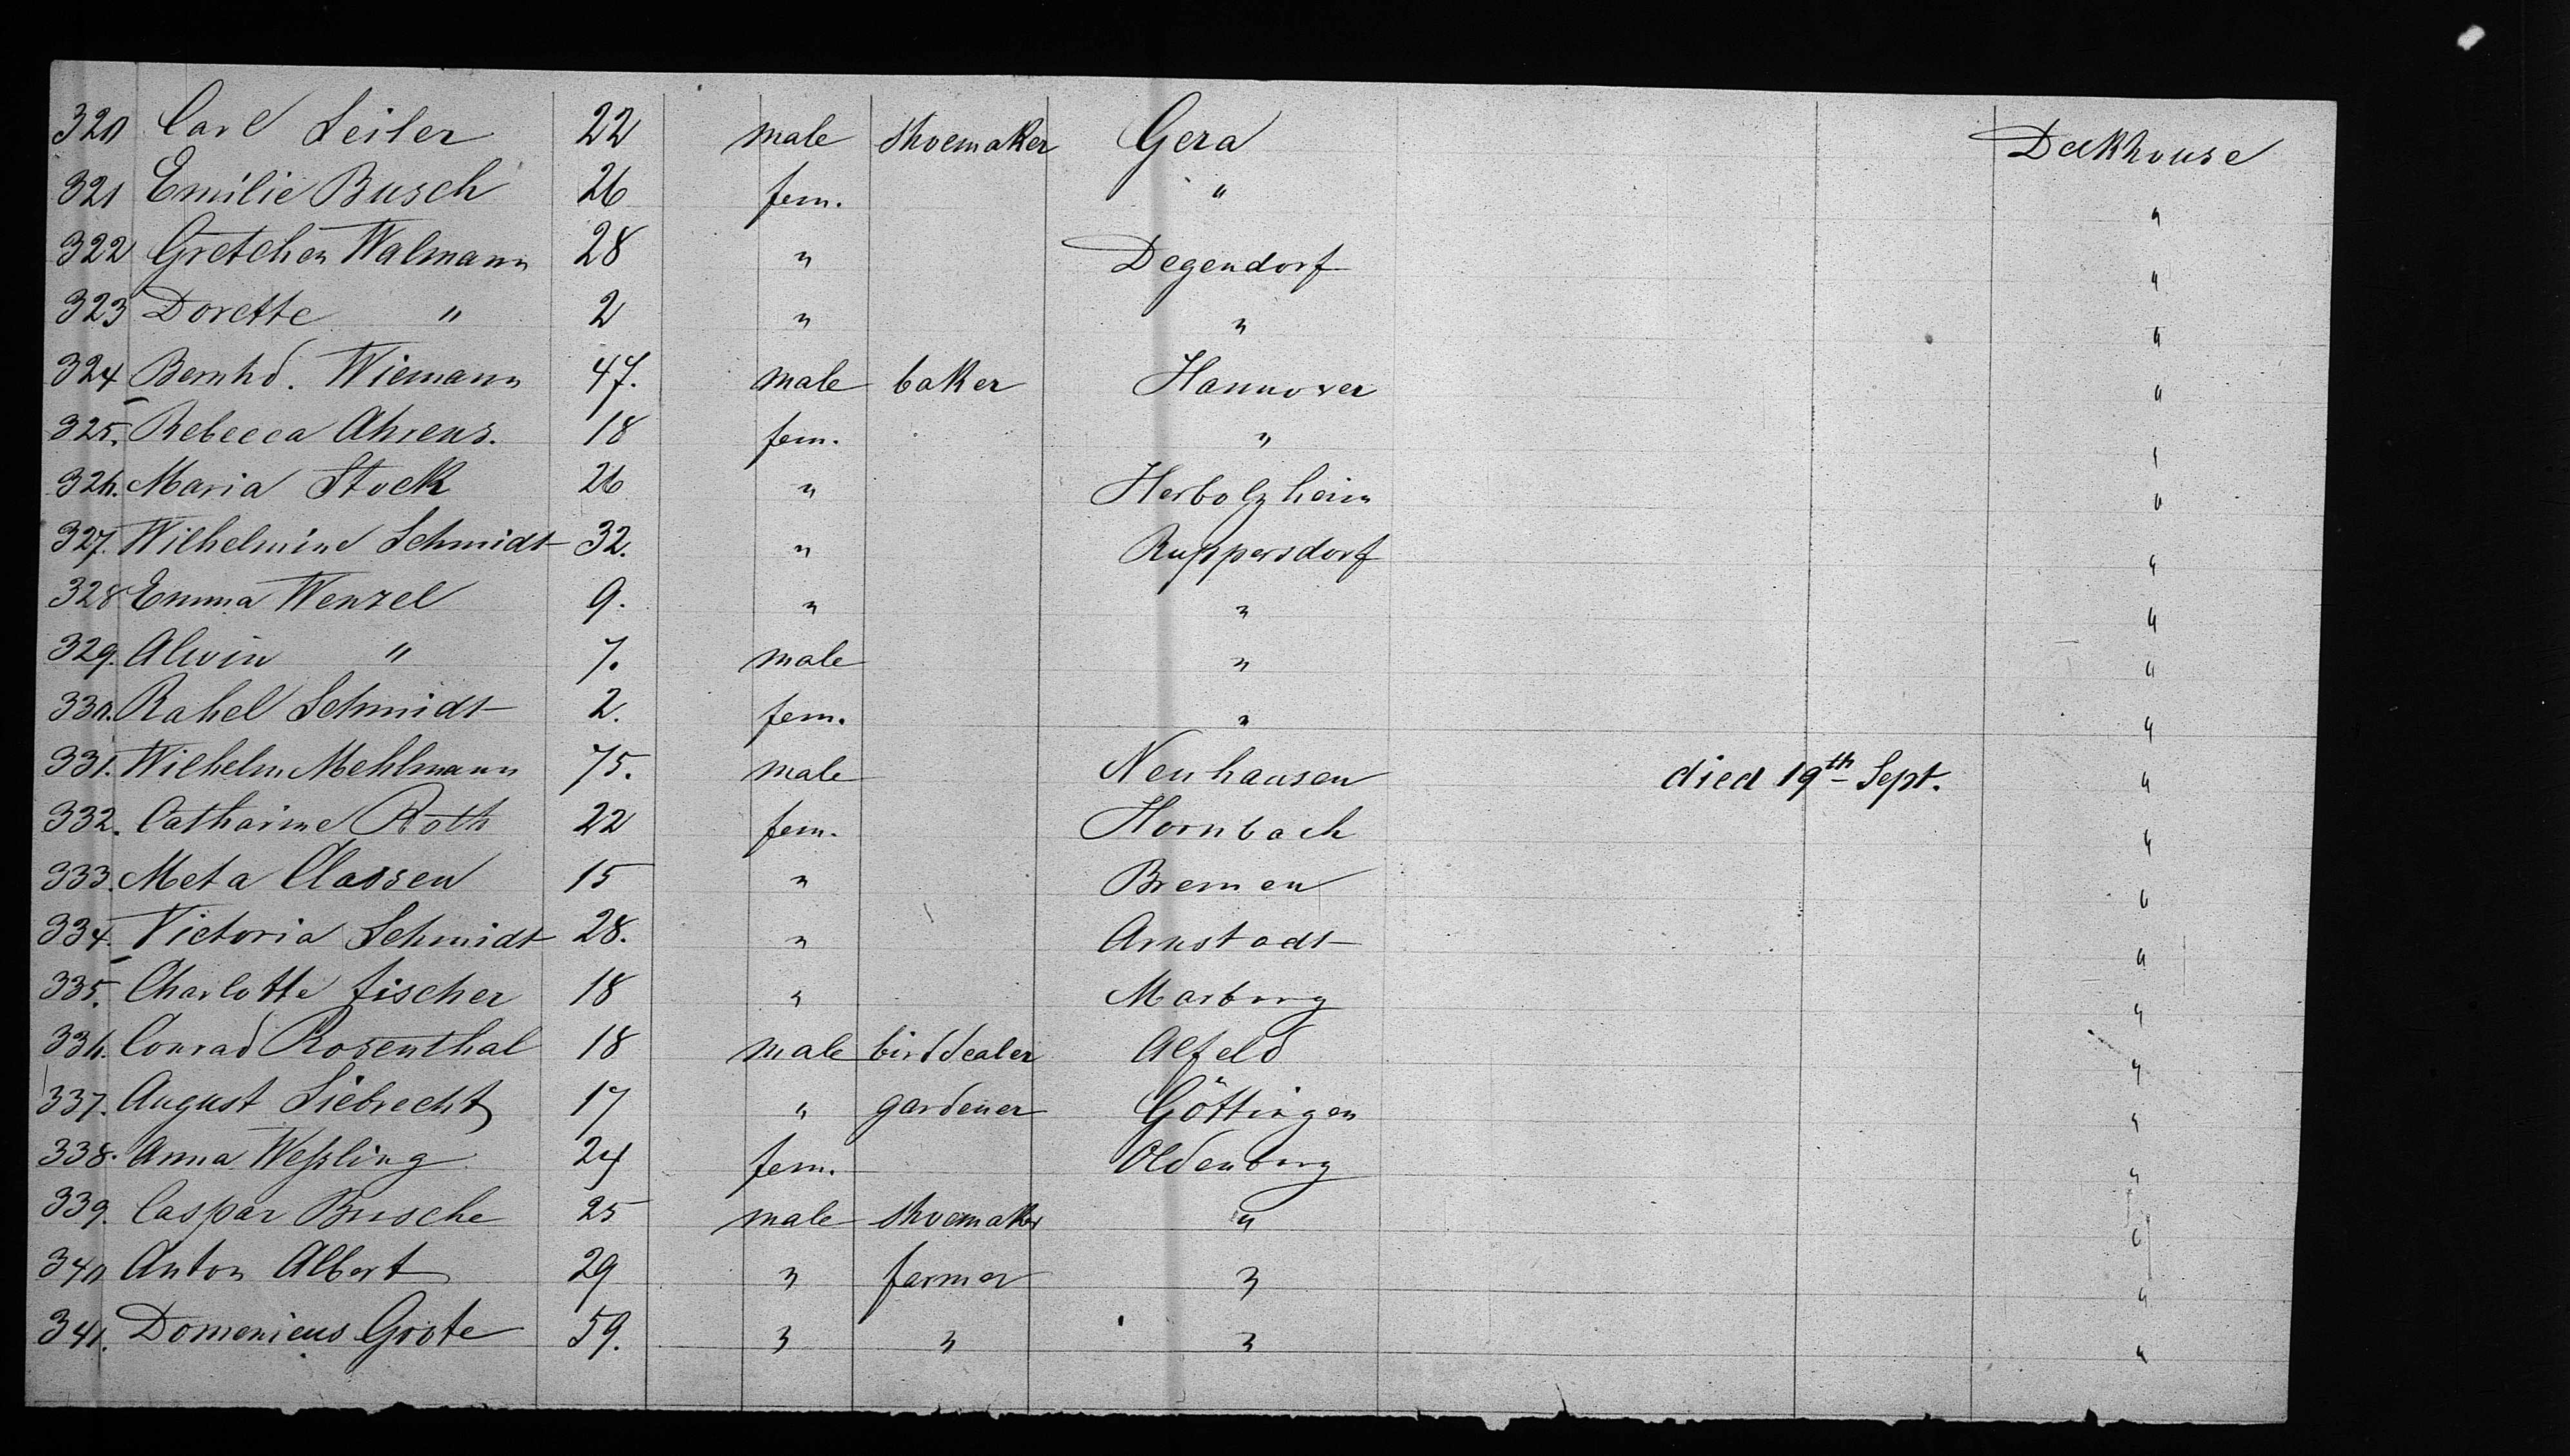 320 Carl Seiler 22 male shoemaker Gera Deckhouse
321 Emilie Busch 26 fem. " "
322 Gretchen Walmann 28 " Degendorf "
323 Dorette " 2 " " "
324 Bernhd. Wiemann 47. male baker Hannover "
325. Rebecca Ahrens. 18 fem. " "
326. Maria Stock 26 " Herbolzheim "
327. Wilhelmine Schmidt 32. " Ruppersdorf "
328 Emma Wenzel 9. " " "
329. Alwin " 7. male " "
330. Rahel Schmidt 2. fem. " "
331. Wilhelm Mehlmann 75. male Neuhausen died 19th Sept. "
332. Catharine Roth 22 fem. Hornbach "
333. Meta Classen 15 " Bremen "
334. Victoria Schmidt 28. " Arnstadt "
335. Charlotte Fischer 18 " Marburg "
336. Conrad Rosenthal 18 male birddealer Alfeld "
337. August Siebrecht 17 " gardener Göttingen "
338. Anna Weßling 24 fem. Oldenburg "
339. Caspar Busche 25 male shoemaker " "
340 Anton Albert 29 " farmer " "
341. Domenicus Grote 59. " " " "